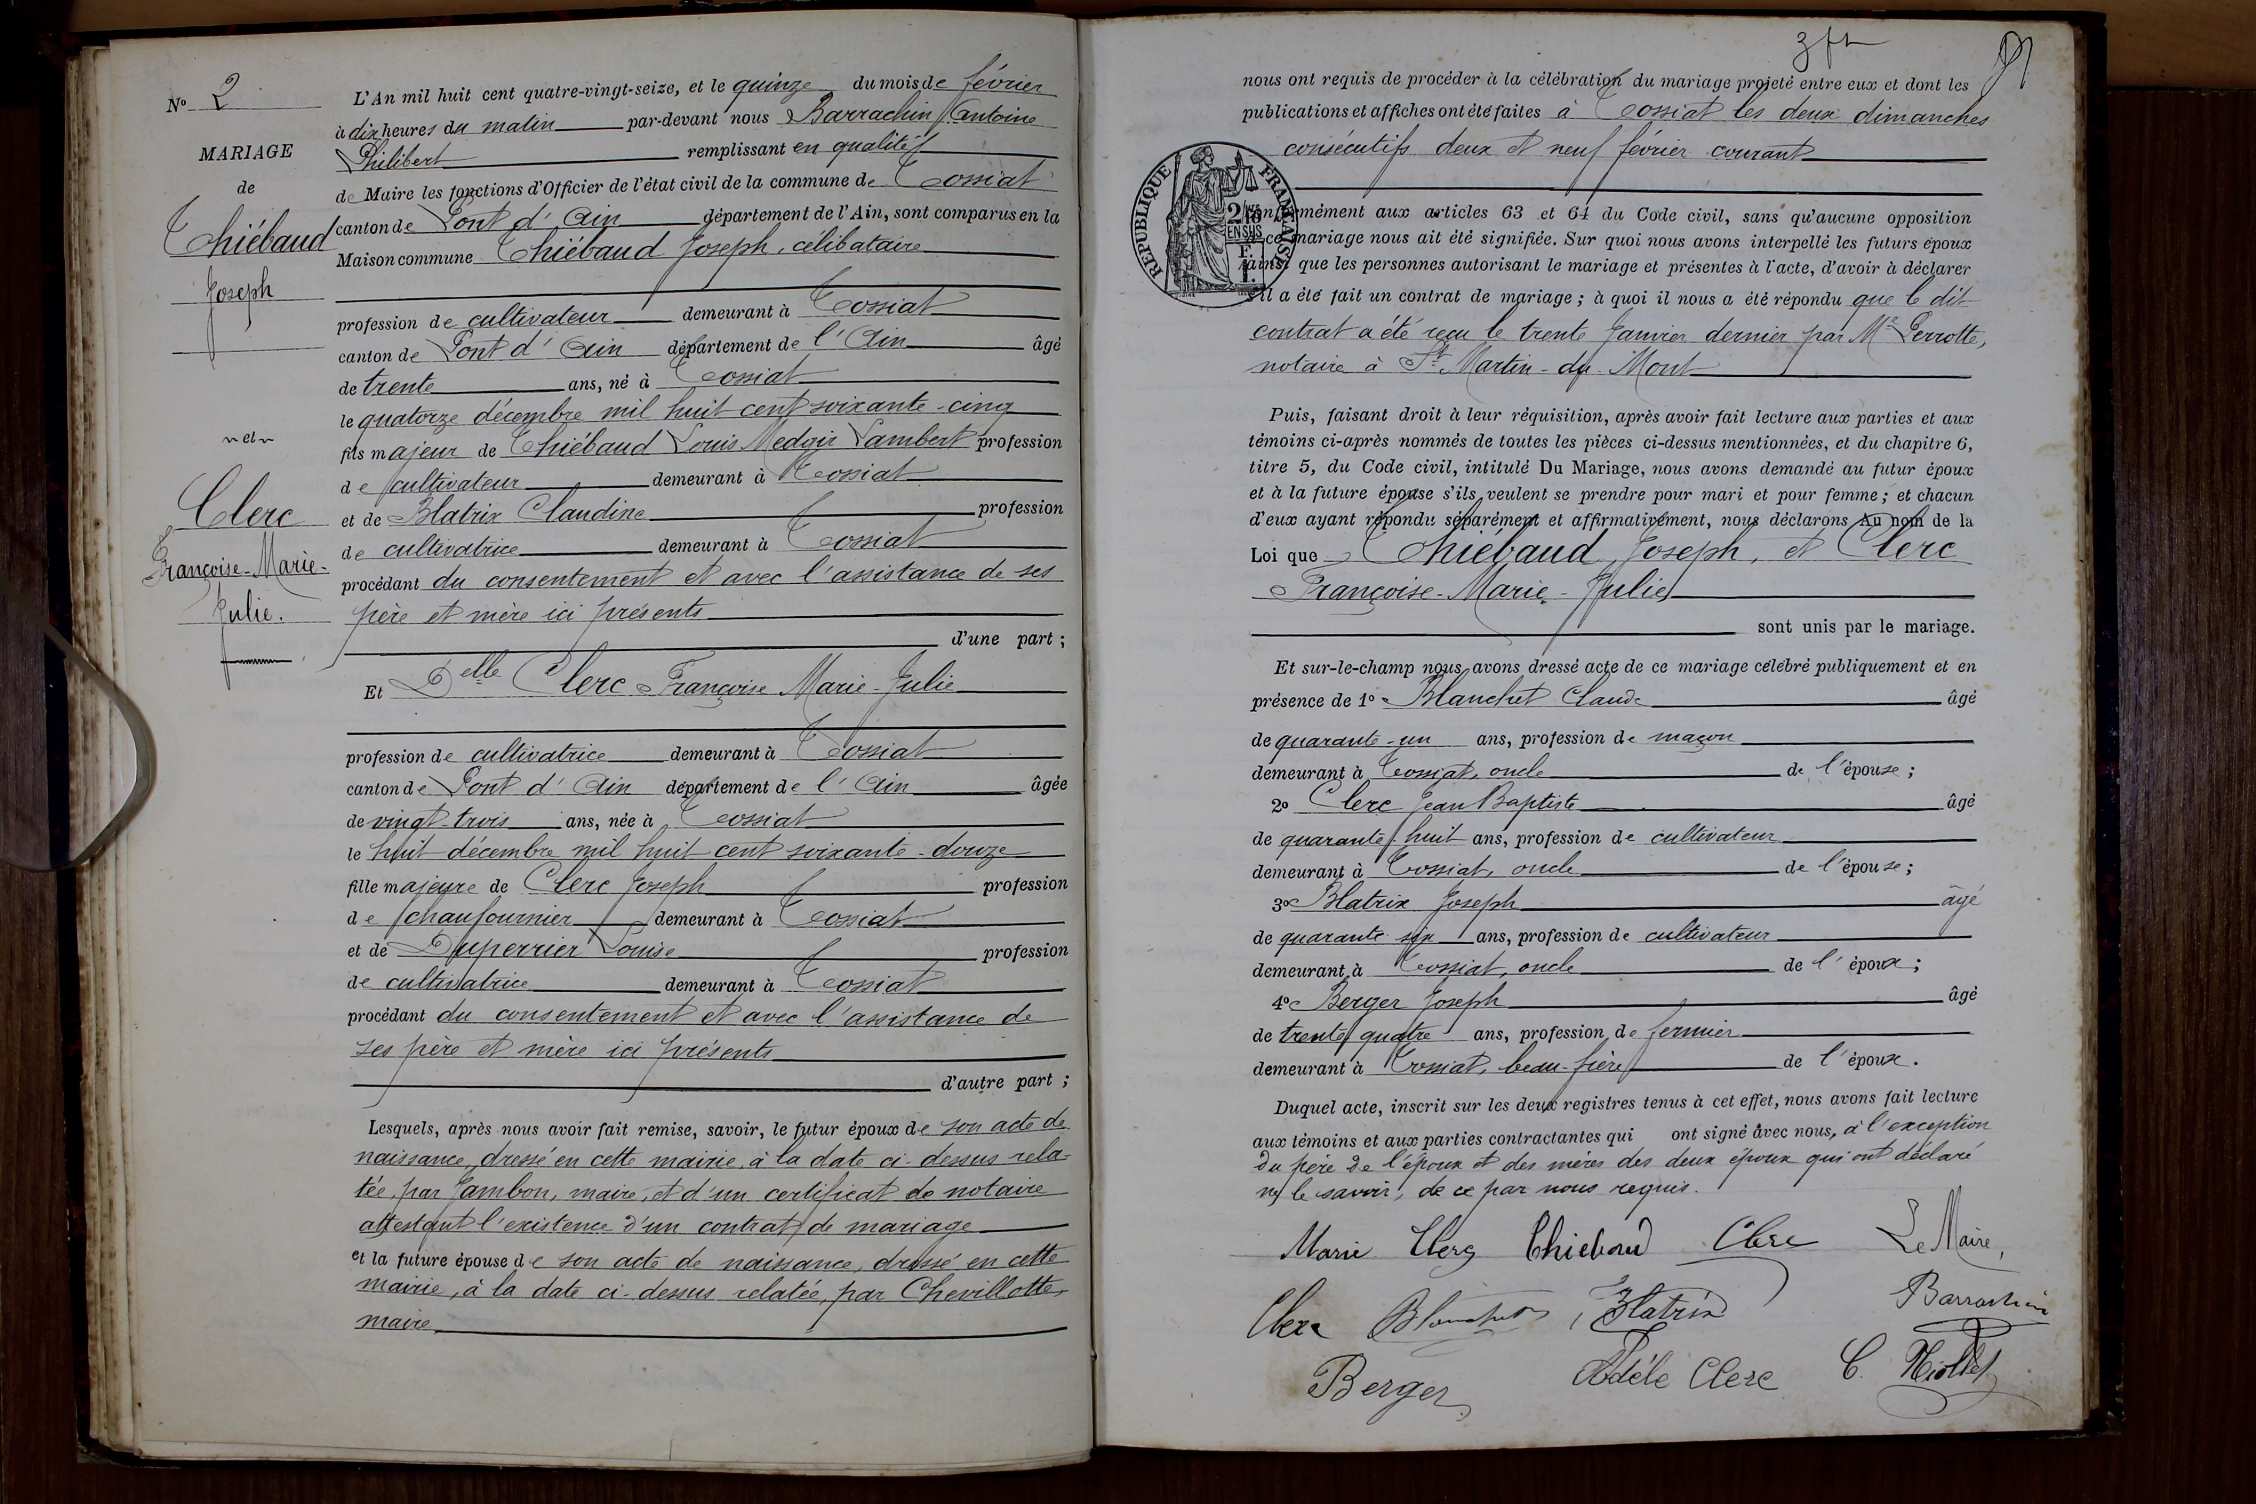 N° 2
MARIAGE
de
Thiébaud
Joseph
et
Clerc
Françoise-Marie-
Julie.
L'An mil huit cent quatre-vingt-seize, et le quinze du mois de février
à dix heures du matin par-devant nous Barrachin Antoine
Philibert remplissant en qualité
de Maire les fonctions d'Officier de l'état civil de la commune de Tossiat
canton de Pont d'Ain département de l'Ain, sont comparus en la
Maison commune Thiébaud Joseph, célibataire
profession de cultivateur demeurant à Tossiat
canton de Pont d'Ain département de l'Ain âgé
de trente ans, né à Tossiat
le quatorze décembre mil huit cent soixante-cinq
fils majeur de Thiébaud Louis Medgir Lambert profession
de cultivateur demeurant à Tossiat
et de Blatrix Claudine profession
de cultivatrice demeurant à Tossiat
procédant du consentement et avec l'assistance de ses
père et mère ici présents
d'une part ;
Et Delle Clerc Françoise Marie-Julie
profession de cultivatrice demeurant à Tossiat
canton de Pont d'Ain département de l'Ain âgée
de vingt-trois ans, née à Tossiat
le huit décembre mil huit cent soixante-douze
fille majeure de Clerc Joseph profession
de chaufournier demeurant à Tossiat
et de Duperrier Louise profession
de cultivatrice demeurant à Tossiat
procédant du consentement et avec l'assistance de
ses père et mère ici présents
d'autre part ;
Lesquels, après nous avoir fait remise, savoir, le futur époux de son acte de
naissance, dressé en cette mairie, à la date ci-dessus rela-
tée, par Jambon, maire, et d'un certificat de notaire
attestant l'existence d'un contrat de mariage
et la future épouse de son acte de naissance, dressé en cette
mairie, à la date ci-dessus relatée, par Chevillotte,
maire
nous ont requis de procéder à la célébration du mariage projeté entre eux et dont les
publications et affiches ont été faites à Tossiat les deux dimanches
consécutifs deux et neuf février courant
RÉPUBLIQUE FRANÇAISE
conformément aux articles 63 et 64 du Code civil, sans qu'aucune opposition
à ce mariage nous ait été signifiée. Sur quoi nous avons interpellé les futurs époux
ainsi que les personnes autorisant le mariage et présentes à l'acte, d'avoir à déclarer
s'il a été fait un contrat de mariage ; à quoi il nous a été répondu que le dit
contrat a été reçu le trente Janvier dernier par Me Perrotte,
notaire à St Martin-du-Mont
Puis, faisant droit à leur réquisition, après avoir fait lecture aux parties et aux
témoins ci-après nommés de toutes les pièces ci-dessus mentionnées, et du chapitre 6,
titre 5, du Code civil, intitulé Du Mariage, nous avons demandé au futur époux
et à la future épouse s'ils veulent se prendre pour mari et pour femme ; et chacun
d'eux ayant répondu séparément et affirmativement, nous déclarons Au nom de la
Loi que Thiébaud Joseph, et Clerc
Françoise-Marie-Julie
sont unis par le mariage.
Et sur-le-champ nous avons dressé acte de ce mariage célébré publiquement et en
présence de 1° Blanchet Claude âgé
de quarante-un ans, profession de maçon
demeurant à Tossiat, oncle de l'épouse ;
2° Clerc Jean Baptiste âgé
de quarante-huit ans, profession de cultivateur
demeurant à Tossiat, oncle de l'épouse ;
3° Blatrix Joseph âgé
de quarante six ans, profession de cultivateur
demeurant à Tossiat, oncle de l'époux ;
4° Berger Joseph âgé
de trente quatre ans, profession de fermier
demeurant à Tossiat, beau-frère de l'époux.
Duquel acte, inscrit sur les deux registres tenus à cet effet, nous avons fait lecture
aux témoins et aux parties contractantes qui ont signé avec nous, à l'exception
du père de l'époux et des mères des deux époux qui ont déclaré
ne le savoir, de ce par nous requis.
Marie Clerc Thiebaud Clerc Le Maire,
Clerc Blanchet Blatrix Barrachin
Berger Adèle Clerc